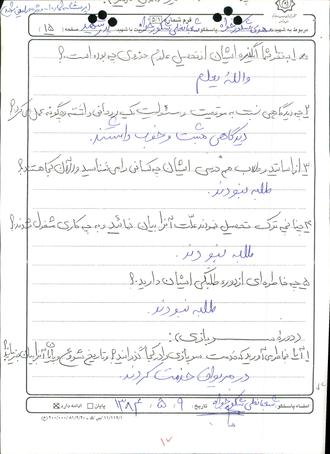 فرم شماره ۵/۱
صفحه: ۱۵
۱- به نظر شما انگیزه ایشان از تحصیل علوم حوزوی چه بوده است؟
والله یعلم
۲- چه دیدگاهی نسبت به مرقعیت و مسئولیت یک روحانی داشته و چگونه عمل می‌کرد؟
دیدگاهی مثبت و خوب داشتند.
۳- از اساتید و طلاب هم درس ایشان چه کسانی را می شناسید و از آنان کجا هستند؟
طلبه نبودند.
۴- چنانچه ترک تحصیل نمودند علت آنرا بیان نمائید و به چه کاری مشغول شدند؟
طلبه نبودند.
۵- چه خاطره‌ای از دوره طلبگی ایشان دارید؟
طلبه نبودند.
دوره سربازی:
۱- آیا بخاطر می آورید که خدمت سربازی را در کجا گذراندند؟ تاریخ شروع و پایان آنرا بیان فرمائید؟
در مریوان خدمت کردند.
امضاء پاسخگو: تاریخ: ۹ / ۵ / ۱۳۸۴ پایان □ ادامه دارد ☒
۱۷